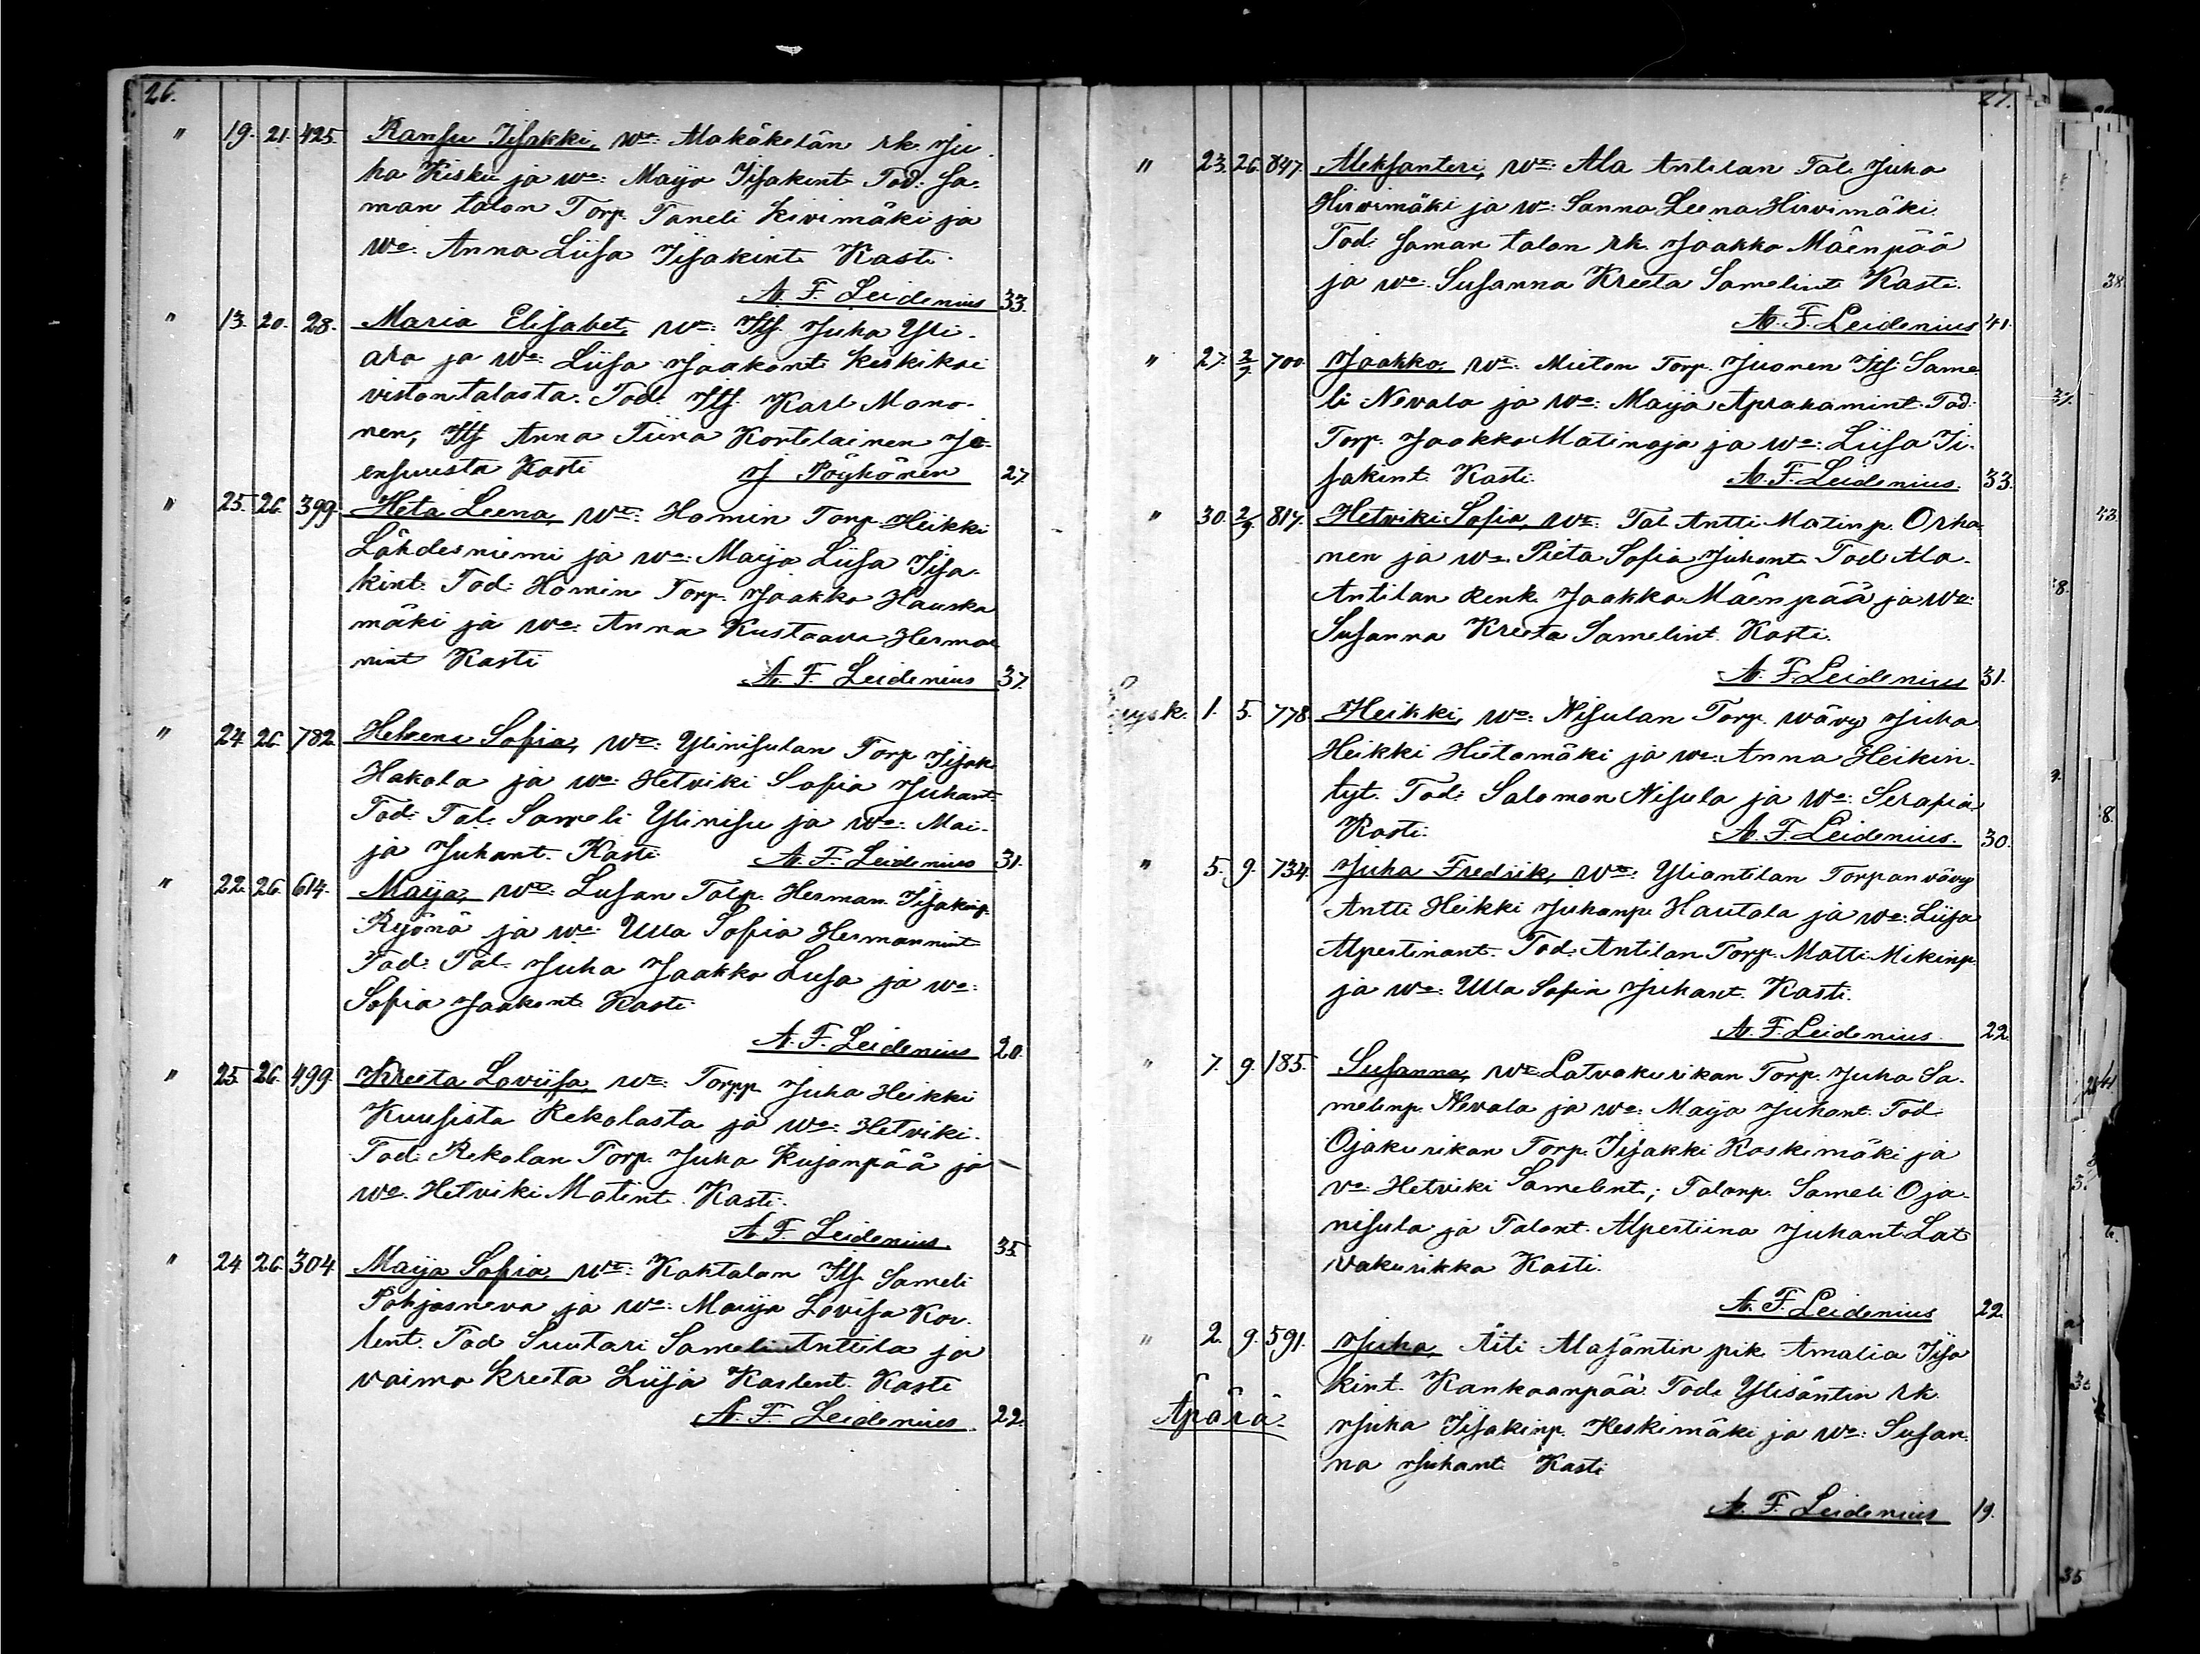 26.
" 19. 21. 425. Ransu Iisakki, Wa: Alakäkelän rk. Ju-
ha Kisku ja wa: Maija Iisakint. Tod: Sa-
man talon Torp. Taneli Kivimäki ja
wa: Anna Liisa Iisakint. Kasti
A. F. Leidenius 33.
" 13. 20. 28. Maria Elisabet, Wa: Its. Juha Yli-
aro ja wa: Liisa Jaakont. Keskikoi
viston talosta. Tod: Its. Karl Mono-
nen, Its Anna Tiina Kortelainen Jo-
ensuusta Kasti J Pöyhönen 27.
" 25. 26. 399. Heta Leena, Wa: Homin Torp. Heikki
Lähdesniemi ja wa: Maija Liisa Iisa-
kint. Tod: Homin Torp. Jaakko Hauska
mäki ja wa: Anna Kustaava Herman-
nint Kasti A. F. Leidenius 37.
" 24. 26. 782. Helena Sofia, Wa: Ylinisulan Torp Iisak
Hakola ja wa: Hetviki Sofia Juhant.
Tod: Tal. Sameli Ylinisu ja wa: Mai-
ja Juhant. Kasti A. F. Leidenius 31.
" 22. 26. 614. Maija, Wa: Lusan Talp. Herman Iisakinp.
Ryönä ja wa: Ulla Sofia Hermannint
Tod. Tal. Juha Jaakko Lusa ja wa:
Sofia Jaakont. Kasti
A. F. Leidenius 20.
" 25. 26. 499. Kreeta Loviisa, Wa: Torpp. Juha Heikki
Kuusista Rekolasta ja wa: Hetviki.
Tod: Rekolan Torp. Juha Kujanpää ja
wa. Hetviki Matint. Kasti.
A. F. Leidenius. 35.
" 24 26. 304 Maija Sofia, Wa: Kohtalam Its. Sameli
Pohjasneva ja wa: Maija Lovisa Kor-
lent. Tod Suutari Sameli Anttila ja
vaimo Kreeta Liisa Kaslent. Kasti
A. F. Leidenius. 22.
27.
" 23. 26. 847. Aleksanteri, Wa: Ala Antilan Tal. Juha
Hirvimäki ja wa: Sanna Leena Hirvimäki.
Tod: Saman talon rk. Jaakko Mäenpää
ja wa: Susanna Kreeta Samelint. Kasti.
A. F. Leidenius 41.
" 27. 2/9. 700. Jaakko, Wa: Mieton Torp. Juonen Its. Same-
li Nevala ja wa: Maija Aprahamint. Tod:
Torp. Jaakko Matinoja ja wa: Liisa Ii-
sakint. Kasti. A. F. Leidenius. 33.
" 30. 2/9. 817. Hetviki Sofia, Wa: Tal Antti Matinp. Orha-
nen ja wa. Pieta Sofia Juhant. Tod: Ala-
Antilan Renk. Jaakko Mäenpää ja Wa:
Susanna Kreeta Samelint. Kasti.
A. F. Leidenius 31.
Syysk. 1. 5. 778. Heikki, Wa: Nisulan Torp. wävy Juha
Heikki Hietamäki ja wa: Anna Heikin-
tyt. Tod: Salomon Nisula ja wa: Serafia.
Kasti. A. F. Leidenius. 30.
" 5. 9. 734. Juha Fredrik, Wa: Yliantilan Torpan vävy
Antti Heikki Juhanp. Hautala ja wa: Liisa
Alpertinant. Tod: Antilan Torp. Matti Mikinp.
ja wa: Ulla Sofia Juhant. Kasti.
A. F. Leidenius. 22.
" 7. 9. 185. Susanna, Wa Latvakurikan Torp. Juha Sa-
melinp. Nevala ja wa: Maija Juhant. Tod.
Ojakurikan Torp. Iisakki Koskimäki ja
va: Hetviki Samelint.; Talonp. Sameli Oja-
nisula ja Talont. Alpertiina Juhant. Lat-
vakurikka Kasti.
A. F. Leidenius 22.
" 2. 9. 591. Juha, Äiti Alasäntin pik. Amalia Iisa
kint. Kankaanpää. Tod: Ylisäntin rk.
Äpärä. Juha Iisakinp. Keskimäki ja wa: Susan-
na Juhant. Kasti
A. F. Leidenius 19.